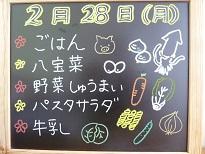 2月28日(月)
ごはん
八宝菜
野菜しゅうまい
パスタサラダ
牛乳し